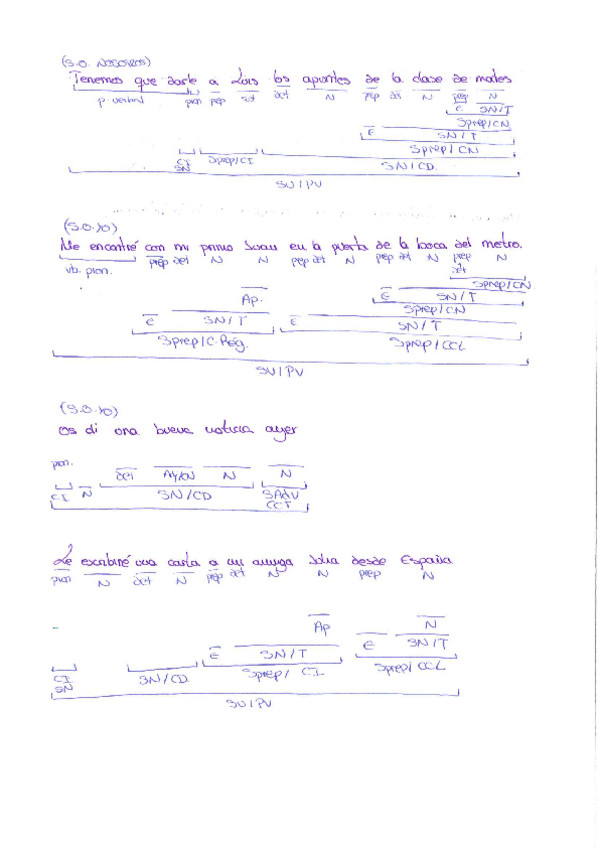 (S.O. NOSOTROS)
Tenemos que darle a Luis los apuntes de la clase de mates
p. verbal pron prep sust det N prep det N prep N
E SN/T
Sprep/CN
E SN/T
Sprep/CN
CI SN Sprep/CI SN/CD
SV/PV
(S.O. YO)
Me encontré con mi primo Juan en la puerta de la boca del metro.
vb. pron. prep det N N prep det N prep det N prep det N
Sprep/CN
E SN/T
Ap. Sprep/CN
E SN/T E SN/T
Sprep/C.Rég. Sprep/CCL
SV/PV
(S.O. YO)
Os di una buena noticia ayer
pron.
det Adj/CN N N
CI N SN/CD SAdv
CCT
Le escribiré una carta a mi amiga Julia desde España
pron N det N prep det N N prep N
Ap N
E SN/T E SN/T
CI SN SN/CD. Sprep/ CI. Sprep/ CCL
SV/PV